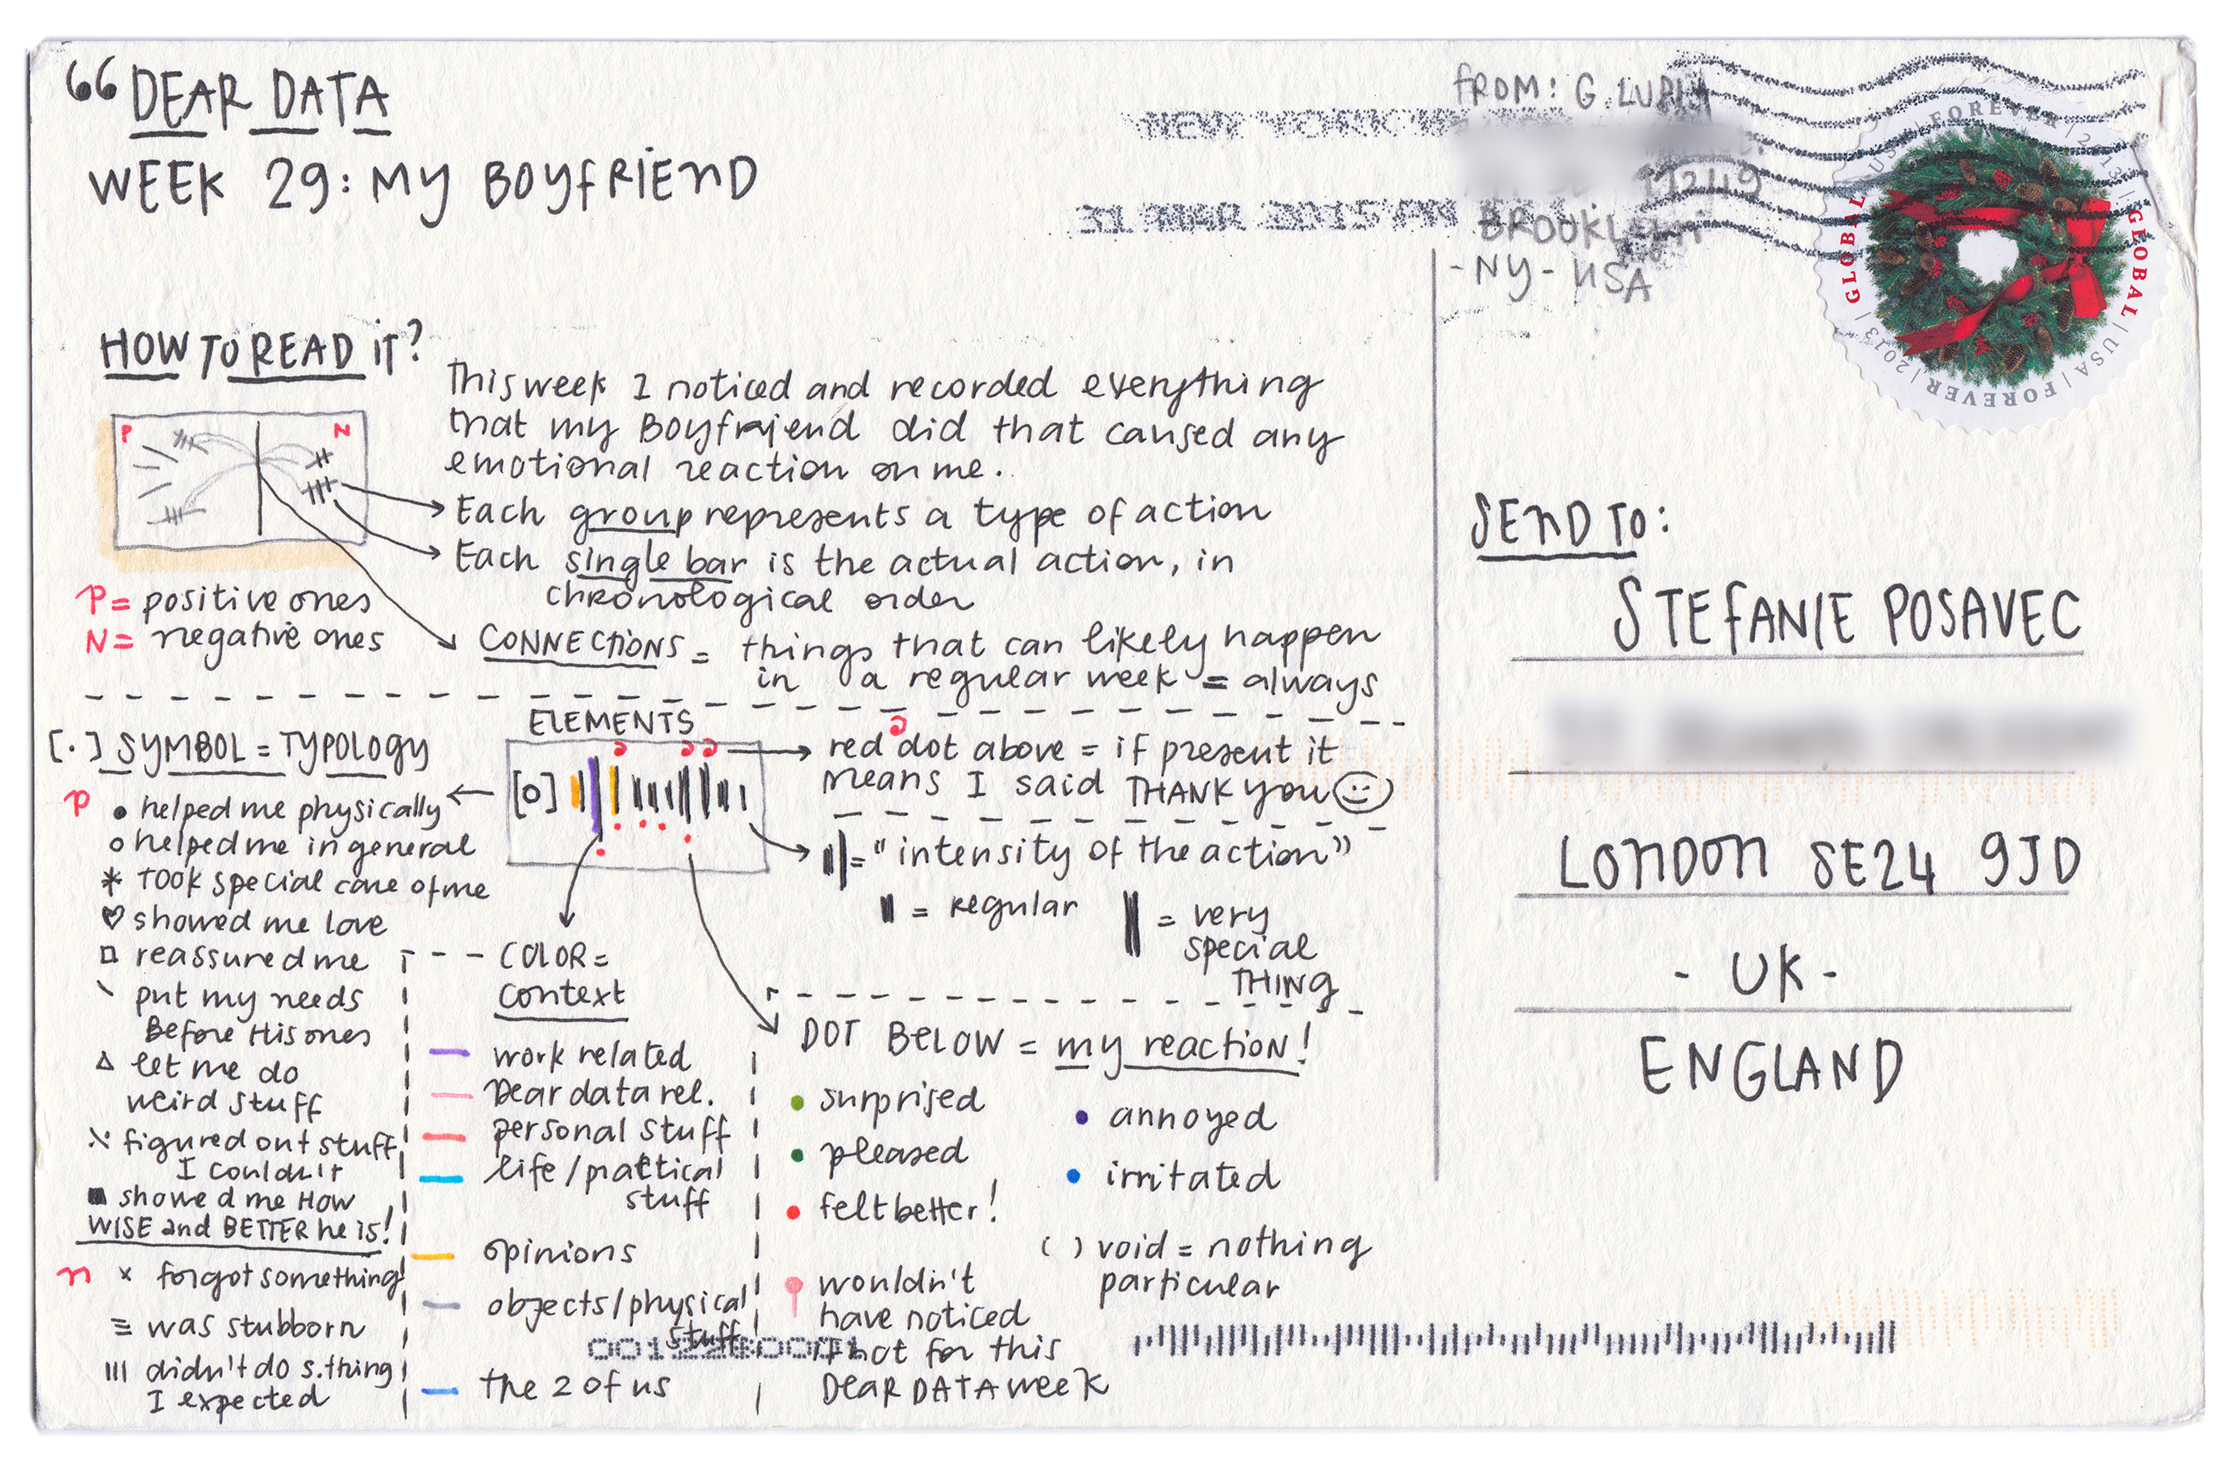 DEAR DATA
WEEK 29: MY BOYFRIEND
FROM: G. LUPI
NEW YORK
11249
31 MAR 2015
BROOKLYN
-NY- USA
GLOBAL | USA | FOREVER | 2013 | GLOBAL | USA | FOREVER | 2013 |
HOW TO READ IT?
This week I noticed and recorded everything
that my Boyfriend did that caused any
emotional reaction on me.
P N
Each group represents a type of action
Each single bar is the actual action, in
chronological order
P = positive ones
N = negative ones
CONNECTIONS = things that can likely happen
in a regular week = always
[·] SYMBOL = TYPOLOGY
P
• helped me physically
o helped me in general
* TOOK special care of me
♡ showed me love
□ reassured me
\ put my needs
Before His ones
△ let me do
weird stuff
figured out stuff
I couldn't
■ showed me HOW
WISE and BETTER he is!
n × forgot something
≡ was stubborn
III didn't do s.thing
I expected
ELEMENTS
[o]
red dot above = if present it
means I said THANK YOU
= "intensity of the action"
= regular
= very
special
THING
COLOR =
context
work related
Dear data rel.
personal stuff
life/practical
stuff
opinions
objects/physical
stuff
the 2 of us
DOT BELOW = my reaction!
surprised
pleased
felt better!
wouldn't
have noticed
if not for this
DEAR DATA week
annoyed
irritated
( ) void = nothing
particular
SEND TO:
STEFANIE POSAVEC
LONDON SE24 9JD
- UK -
ENGLAND